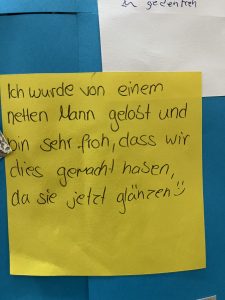 zu gedenken
Ich wurde von einem
netten Mann gelost und
bin sehr froh, dass wir
dies gemacht haben,
da sie jetzt glänzen :)